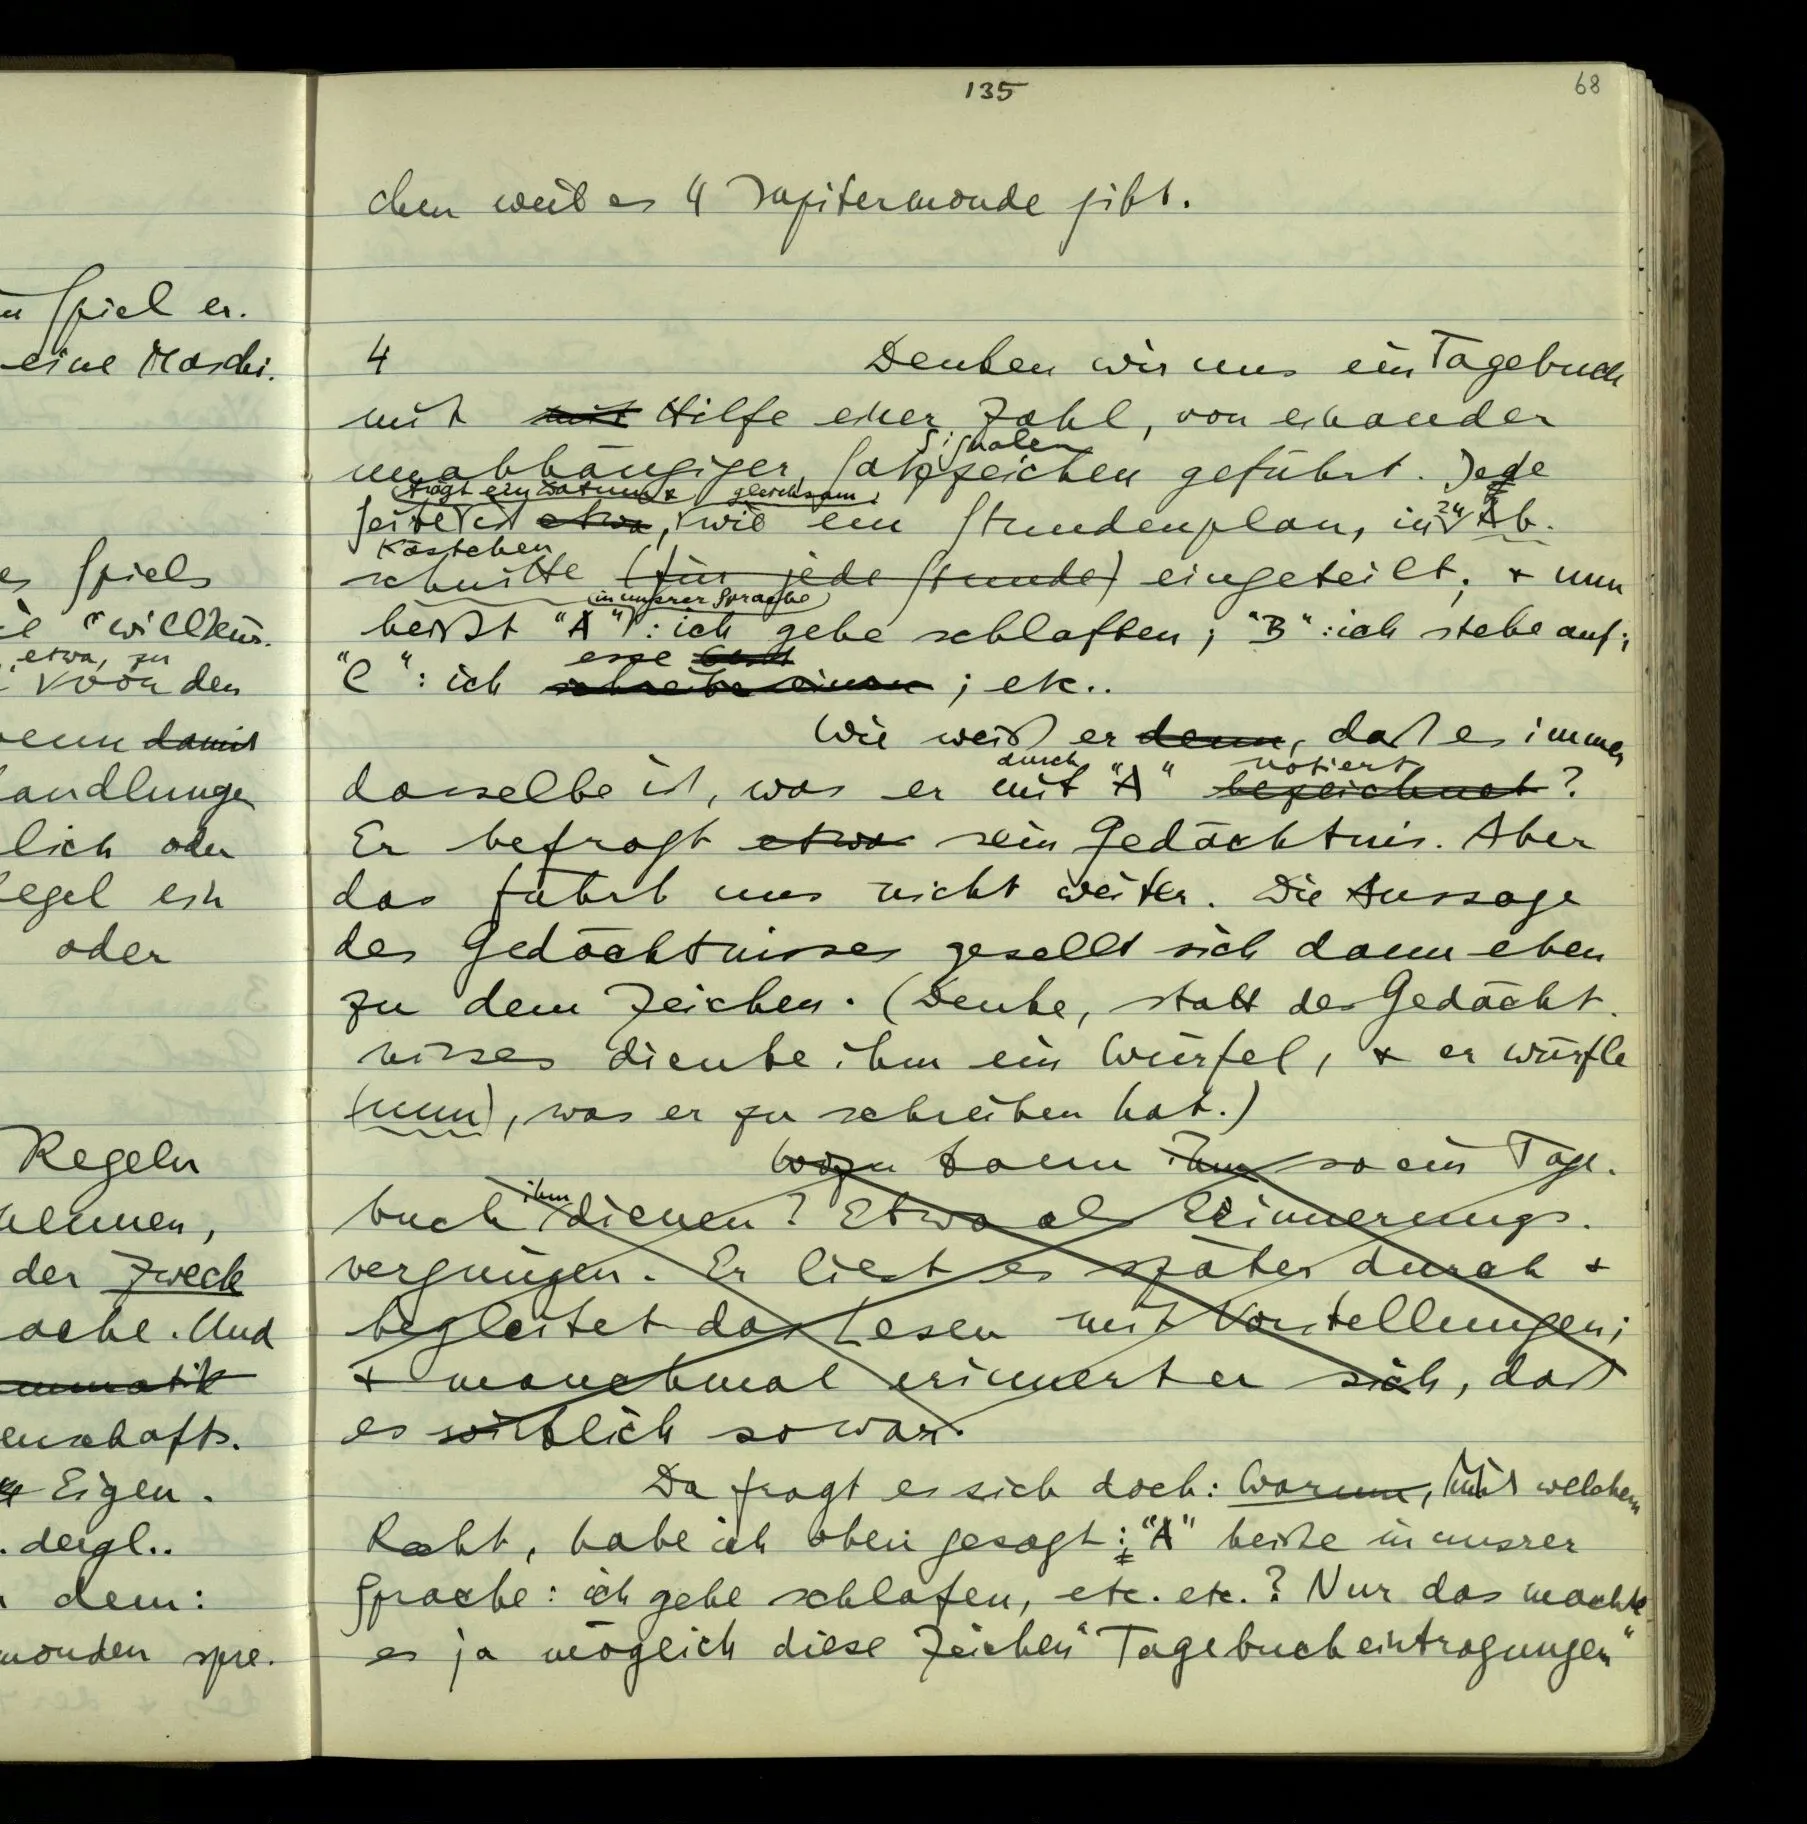 u Spiel er.
eine Maschi.
es Spiels
"willkür.
etwa, zu
von den
wenn damit
andlungen
lich oder
egel ein
oder
Regeln
der Zweck
ache. Und
ammatik
enschafts.
Eigen.
. dergl..
dem:
monden spre.
135
68
chen weil es 4 Jupitermonde gibt.
4 Denken wir uns ein Tagebuch
mit mit Hilfe einer Zahl, von einander
Signalen
unabhängiger, Satzzeichen geführt. Jede
trägt ein Datum & gleichsam
Seite ist etwa, wie ein Stundenplan, in 24 Ab.
Kästchen
schnitte (für jede Stunde) eingeteilt; & nun
(in unsrer Sprache)
heißt "A": ich gehe schlaffen; "B": ich stehe auf;
esse
"C": ich schreibe einen; etc..
Wie weiß er denn, daß es immer
durch notiert
dasselbe ist, was er mit "A" bezeichnet?
Er befragt etwa sein Gedächtnis. Aber
das führt uns nicht weiter. Die Aussage
des Gedächtnisses gesellt sich dann eben
zu dem Zeichen. (Denke, statt des Gedächt.
nisses diente ihm ein Würfel, & er würfle
(nun), was er zu schreiben hat.)
Wozu kann ihm so ein Tage.
ihm
buch dienen? Etwa als Erinnerungs.
vergnügen. Er liest es später durch &
begleitet das Lesen mit Vorstellungen;
& manchmal erinnert er sich, daß
es wirklich so war.
Da fragt es sich doch: Warum, mit welchem
Recht, habe ich oben gesagt: "A" heiße in unsrer
Sprache: ich gehe schlafen, etc. etc.? Nur das machte
es ja möglich diese Zeichen "Tagebucheintragungen"